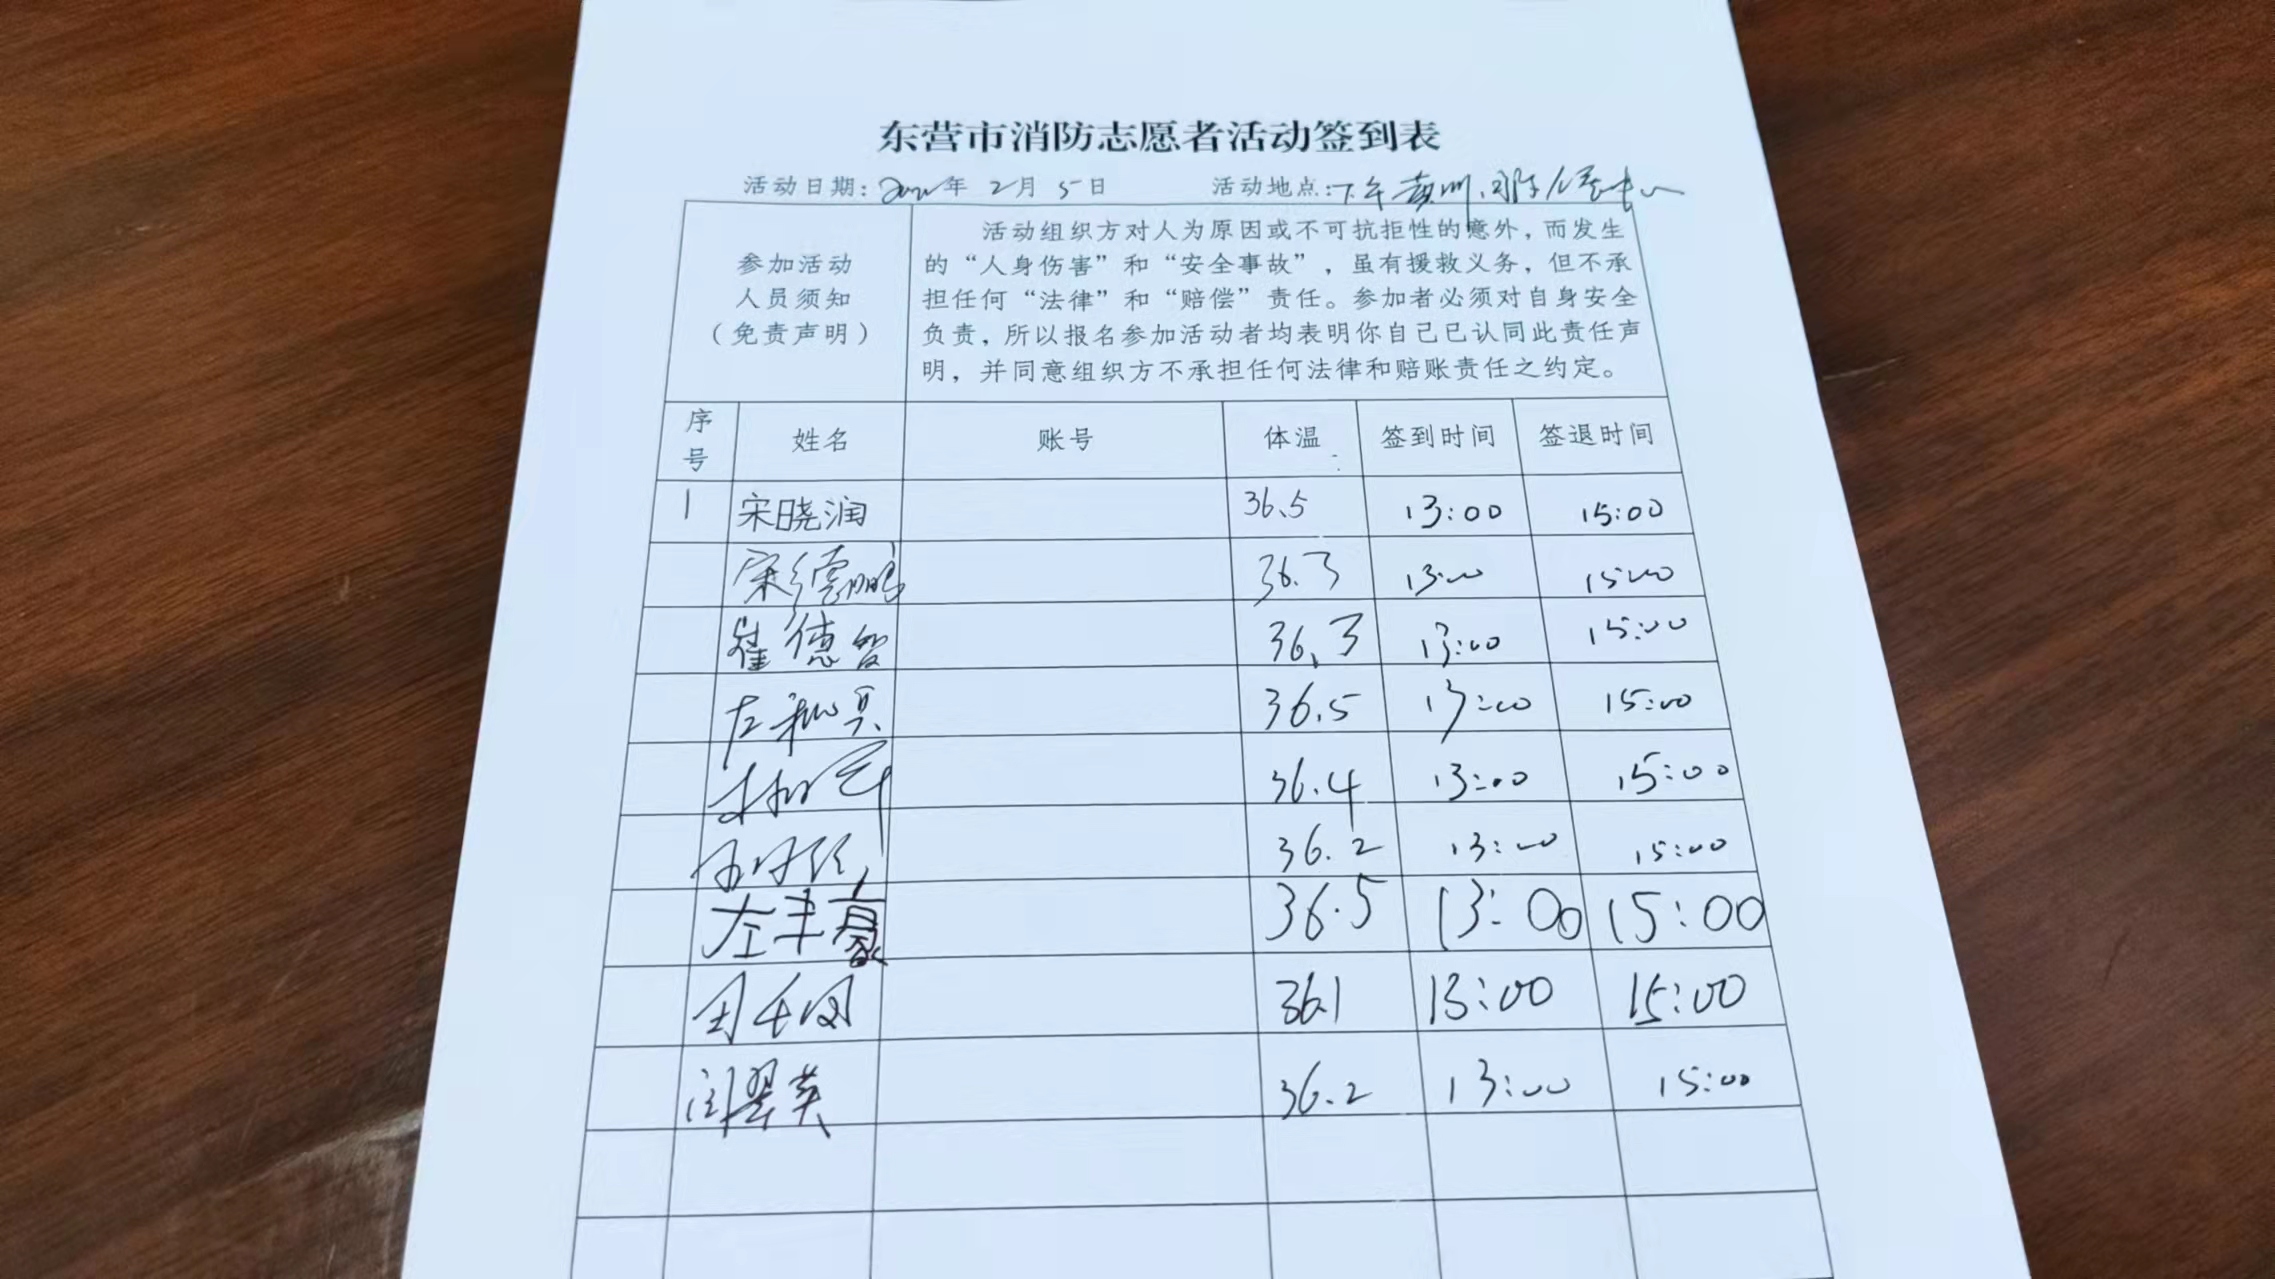 东营市消防志愿者活动签到表
活动日期: 年 2月 5日 活动地点:下午黄河
参加活动
人员须知
（免责声明）
活动组织方对人为原因或不可抗拒性的意外，而发生
的“人身伤害”和“安全事故”，虽有援救义务，但不承
担任何“法律”和“赔偿”责任。参加者必须对自身安全
负责，所以报名参加活动者均表明你自己已认同此责任声
明，并同意组织方不承担任何法律和赔账责任之约定。
序号 姓名 账号 体温 签到时间 签退时间
1 宋晓润 36.5 13:00 15:00
宋德鹏 36.3 13:00 15:00
崔德智 36.3 13:00 15:00
左 36.5 13:00 15:00
36.4 13:00 15:00
36.2 13:00 15:00
左丰豪 36.5 13:00 15:00
周 36.1 13:00 15:00
闫翠英 36.2 13:00 15:00